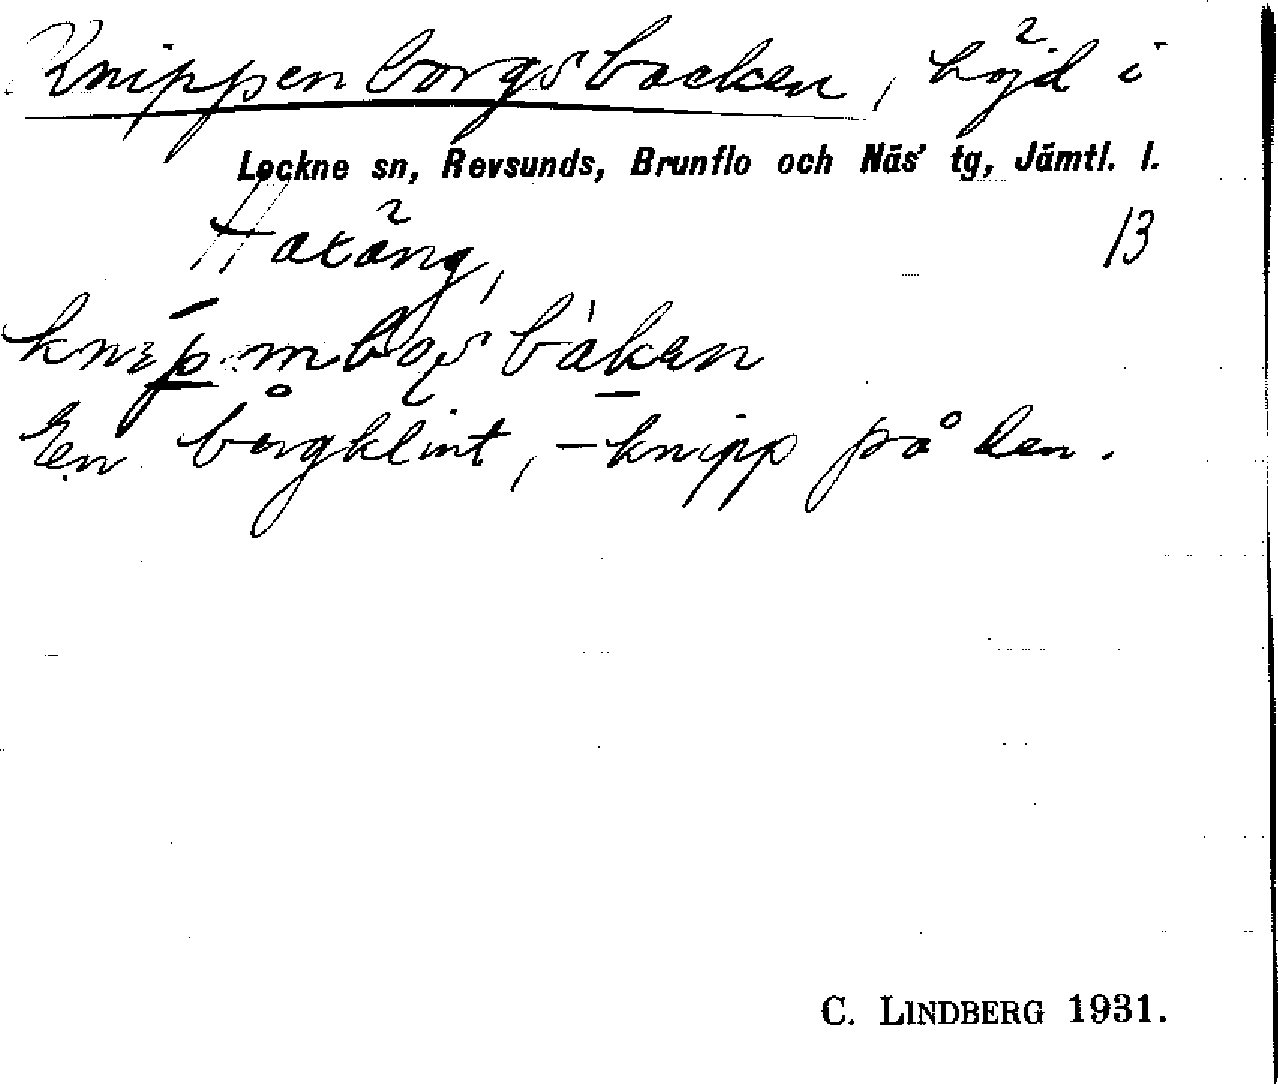 Knippenborgsbacken, höjd i
Lockne sn, Revsunds, Brunflo och Näs' tg, Jämtl. l.
Haxäng, 13
En bergklint, – knipp på den.
C. LINDBERG 1931.